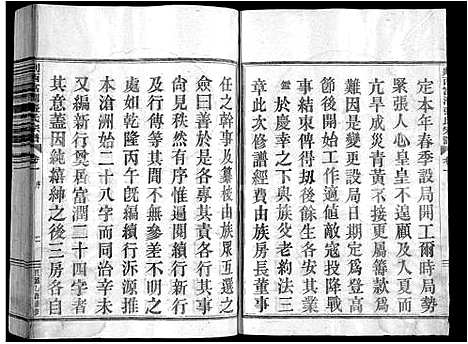 定本年春季設局開工爾時局勢
緊張人心皇皇不遑顧及入夏而
亢旱成災青黃不接籌款為
難因是變更設局日期定為興夏
節後開始工作適値敵寇投降戰
事結束俾得刼後餘生各安其業
於慶幸之下與族父老約法三
章此次修譜經費由族房長董事
任之幹事及由族眾互選
僉曰善於是各專其責各行其事
尚見秩然有序惟遍閱續行新行
及行傳等不無參差不明之行
處如乾隆丙午甌編續行泝源推
本滄洲始二十八字而同治辛未
又編新行奬居富潤二十四字者
其意蓋因純禧紳之後三房各自